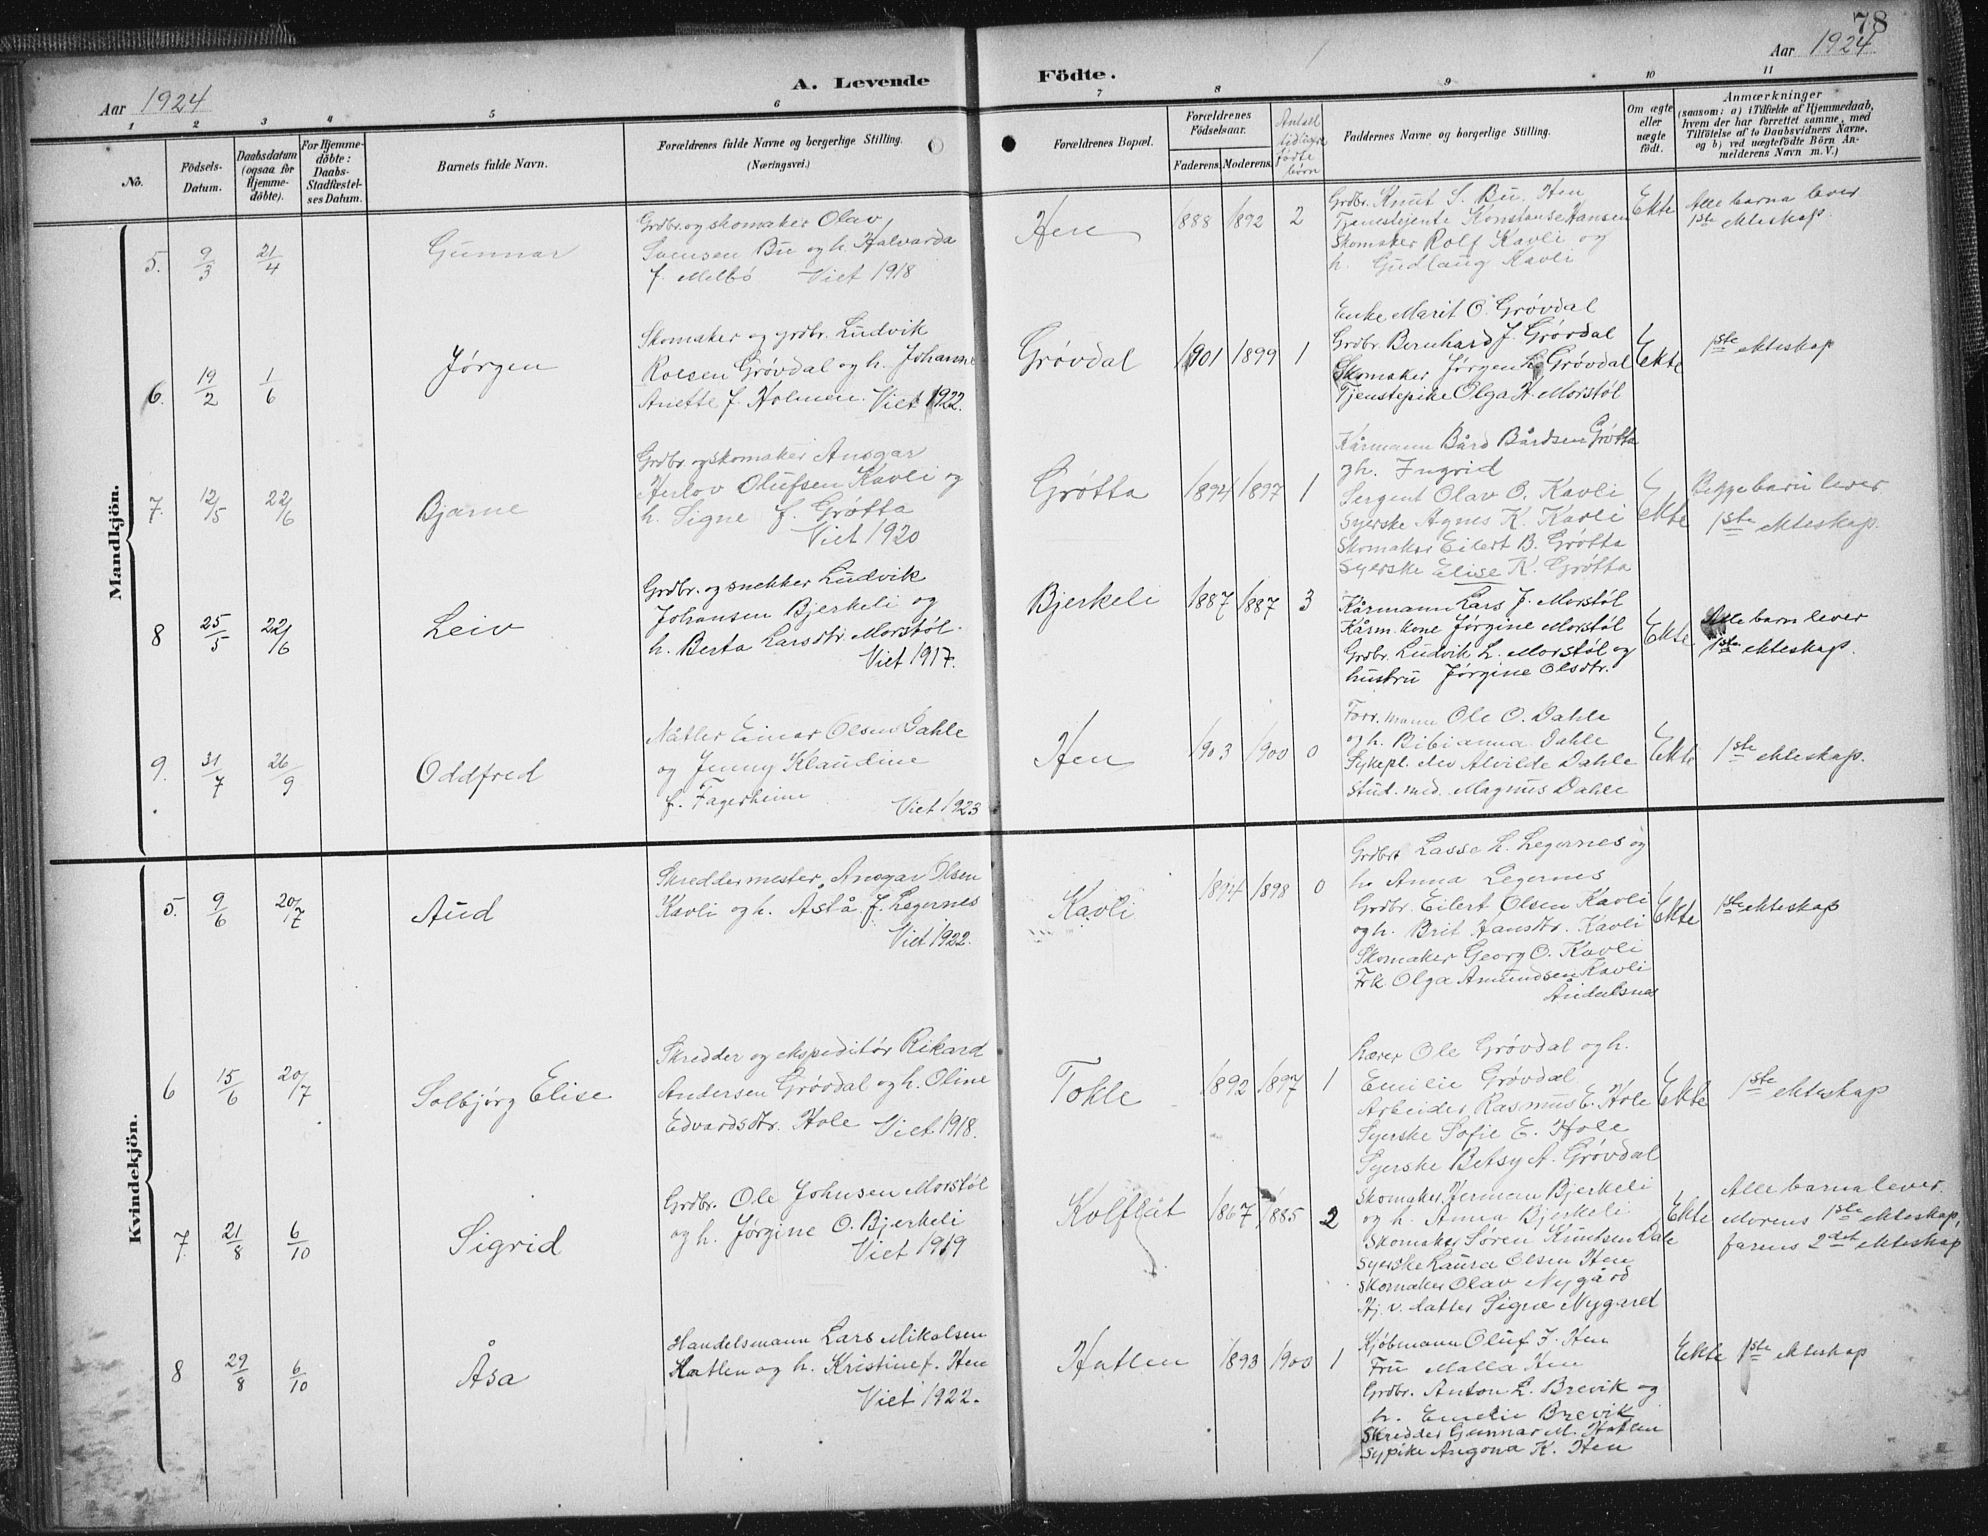 78
Aar 1924
A. Levende Födte.
Aar 1924
1 2 3 4 5 6 7 8 9 10 11
No.
Födsels-Datum.
Daabsdatum (ogsaa for Hjemme-döbte).
For Hjemme-döbte: Daabs-Stadfæstel-ses Datum.
Barnets fulde Navn.
Forældrenes fulde Navne og borgerlige Stilling.
(Næringsvei.)
Forældrenes Bopæl.
Forældrenes Födselsaar.
Faderens. Moderens.
Antal tidligere födte börn
Faddernes Navne og borgerlige Stilling.
Om ægte eller uægte födt.
Anmærkninger
(saasom: a) i Tilfælde af Hjemmedaab, hvem der har forrettet samme, med Tilföielse af to Daabsvidners Navne, og b) ved uægtefödte Börn An-melderens Navn m. V.)
Mandkjön.
5. 9/3 21/4 Gunnar
Grdbr. og skomaker Olav
Samsen Bu og h. Halvarda
f. Melbö Viet 1918
Hen 1888 1892 2
Grdbr. Knut S. Bu, Hen
Tjenestejente Konstanse Hansen
Skomaker Rolf Kavli og
h. Gudlaug Kavli
Ekte
Alle barna lever
1ste ekteskap.
6. 19/2 1/6 Jørgen
Skomaker og grdbr. Ludvik
Roesen Grøvdal og h. Johanne
Anette f. Holmen. Viet 1922.
Grøvdal 1901 1899 1
Enke Marit O. Grøvdal
Grdbr. Bernhard J. Grøvdal
Skomaker Jørgen Grøvdal
Tjenstepike Olga H. Morstøl
Ekte
1ste ekteskap
7. 12/5 22/6 Bjarne
Grdbr. og skomaker Ansgar
Herlov Olufsen Kavli og
h. Signe f. Grøtta
Viet 1920
Grøtta 1894 1897 1
Kårmann Bård Bårdsen Grøtta
og h. Ingrid
Sergent Olav O. Kavli
Syerske Agnes K. Kavli
Skomaker Eilert B. Grøtta
Syerske Elise K. Grøtta
Ekte
Begge barn lever
1ste ekteskap.
8 25/5 22/6 Leiv
Grdbr. og snekker Ludvik
Johansen Bjerkeli og
h. Berta Larsdtr. Morstøl.
Viet 1917.
Bjerkeli 1887 1887 3
Kårmann Lars J. Morstøl
Kårm. kone Jørgine Morstøl
Grdbr. Ludvik L. Morstøl og
hustru Jørgine Olsdtr.
Ekte
Alle barn lever
1ste ekteskap.
9. 31/7 26/9 Oddfred
Måtler Einar Olsen Dahle
og Jenny Klaudine
f. Fagerheim Viet 1923
Hen 1903 1900 0
Forr. mann Ole O. Dahle
og h. Bibianna Dahle
Sykepl. elev Alvilde Dahle
Stud. med. Magnus Dahle
Ekte
1ste ekteskap.
Kvindekjön.
5. 9/6 20/7 Aud
Skreddermester Ansgar Olsen
Kavli og h. Åsta f. Legernes
Viet 1922.
Kavli 1894 1898 0
Grdbr. Lasse L. Legernes og
h. Anna Legernes
Grdbr. Eilert Olsen Kavli
og h. Brit Hansdtr. Kavli
Skomaker Georg O. Kavli
Frk. Olga Amundsen Kavli
Åndalsnes
Ekte
1ste ekteskap
6 15/6 20/7 Solbjørg Elise
Skredder og ekspeditør Rikard
Andersen Grøvdal og h. Oline
Edvardsdtr. Hole Viet 1918.
Tokle 1892 1897 1
Lærer Ole Grøvdal og h.
Emilie Grøvdal
Arbeider Rasmus E. Hole
Syerske Sofie E. Hole
Syerske Betsy A. Grøvdal
Ekte
1ste ekteskap
7. 21/8 6/10 Sigrid
Grdbr. Ole Johnsen Morstøl
og h. Jørgine O. Bjerkeli
Viet 1919
Kolflåt 1867 1885 2
Skomaker Herman Bjerkeli
og h. Anna Bjerkeli
Skomaker Søren Knutsen Dale
Syerske Laura Olsen Hen
Skomaker Olav Nygård
Hj. v. datter Signe Nygaard
Ekte
Alle barna lever.
Morens 1ste ekteskap,
farens 2det ekteskap
8 29/8 6/10 Åsa
Handelsmann Lars Mikalsen
Hatlen og h. Kristine f. Hen
Viet 1922.
Hatlen 1893 1900 1
Kjøbmann Oluf I. Hen
Fru Malla Hen
Grdbr. Anton L. Brevik og
h. Emelie Brevik
Skredder Gunnar M. Hatlen
Sypike Angona K. Hen
Ekte
1ste ekteskap